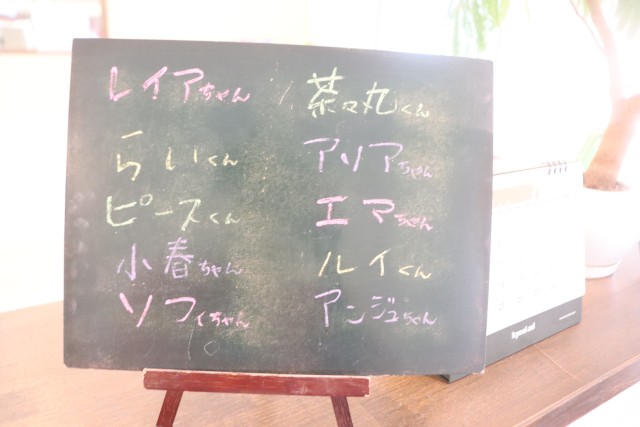 レイアちゃん
らいくん
ピースくん
小春ちゃん
ソフィちゃん
茶々丸くん
アリアちゃん
エマちゃん
ルイくん
アンジュちゃん